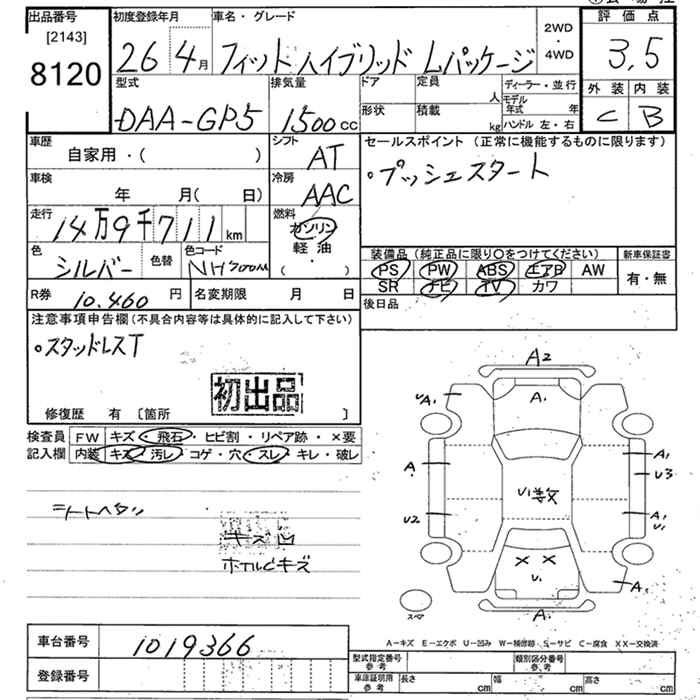 出品番号
[2143]
8120
初度登録年月
26 4月
車名・グレード
フィットハイブリッド Lパッケージ
2WD
・
4WD
評価点
3,5
外装 内装
C B
型式
DAA-GP5
排気量
1500cc
ドア
定員
人
形状
積載
kg
ディーラー・並行
モデル年式 年
ハンドル 左・右
車歴
自家用・( )
シフト
AT
セールスポイント (正常に機能するものに限ります)
・プッシュスタート
車検
年 月( 日)
冷房
AAC
走行
14万9千711km
燃料
ガソリン
軽油
( )
色
シルバー
色替
色コード
NH700M
装備品 (純正品に限り〇をつけてください)
PS PW ABS エアB AW
SR ナビ TV カワ
新車保証書
有・無
R券
10.460円
名変期限 月 日
後日品
注意事項申告欄(不具合内容等は具体的に記入して下さい)
・スタッドレスT
初出品
修復歴 有 [箇所 ]
検査員
記入欄
FW キズ・飛石・ヒビ割・リペア跡・×要
内装 キズ・汚レ・コゲ・穴・スレ・キレ・破レ
シートヘタリ
キズ凹
ホイルにキズ
A2
UA1
A1
A
A1
U3
U1数
U2
A1
U1
× ×
U1
A1
A1
スペア
A－キズ E－エクボ U－凹み W－補修跡 S－サビ C－腐食 XX－交換済
車台番号
1019366
登録番号
型式指定番号
参考
類別区分番号
参考
車庫証明用
参考
長さ cm
幅 cm
高さ cm